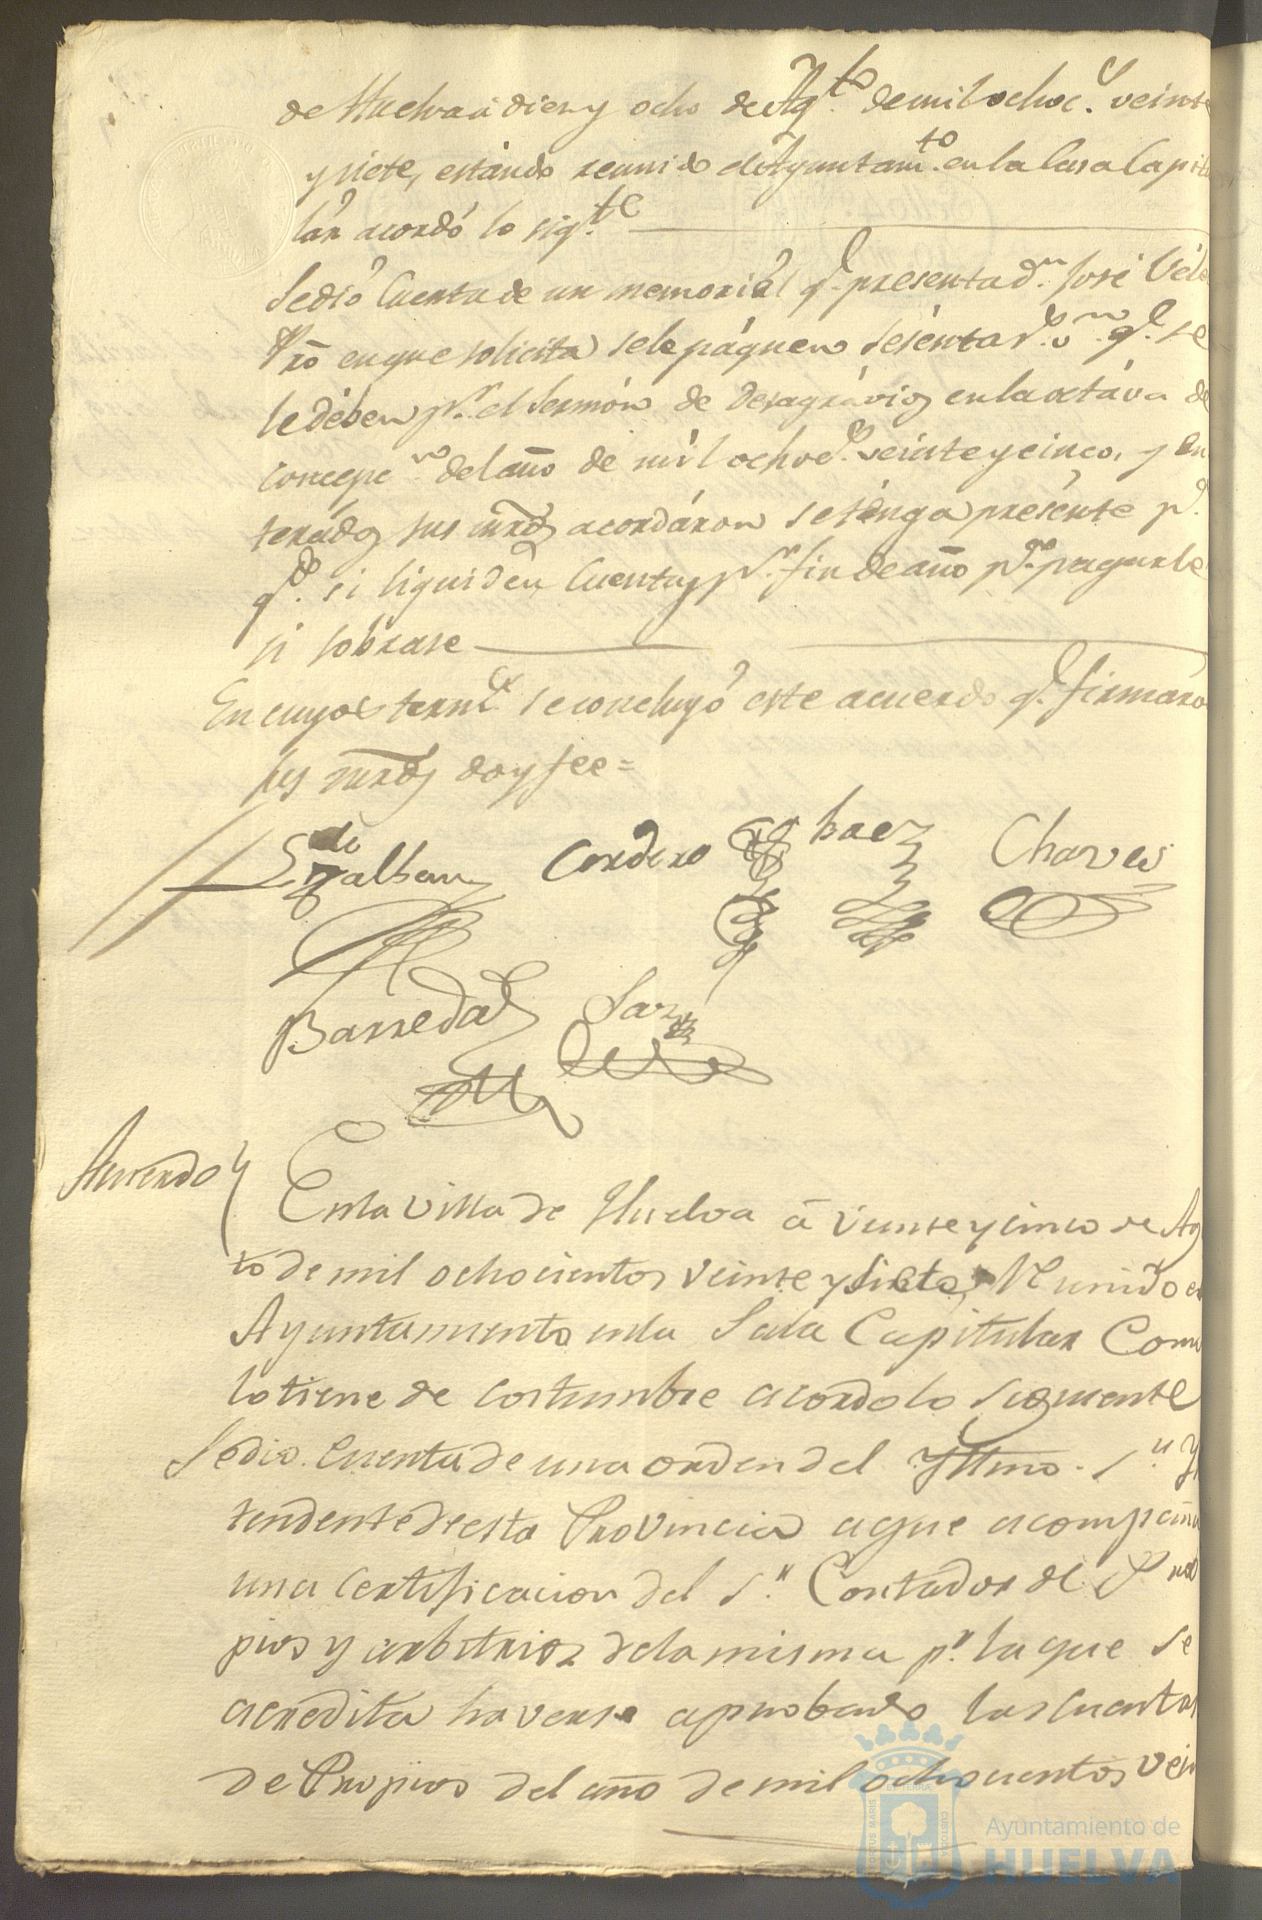 de Huelva á diez y ocho de Agto. de mil ochocs. veinte
y siete, estándo reunido el Ayuntamto. en la Casa Capitu
lár acordó lo sigte.
Se dió Cuenta de un memoriál q.e presenta d.n José Véle
Pro en que solicita se le páguen sesenta r.s v.n q.e se
le dében p.r el Sermón de Desagrávios en la octáva de
Concepc.n del año de mil ochoc.s veinte y cinco, y en
terádos sus mrds acordáron se ténga presénte p.a
q.e si liquiden Cuentas p.r fin de año p.a pagarle
si sobrase
En cuyos term.s se concluyó este acuerdo q.e firmáro
sus mrds doy fee =
Cordero Baez Chaves
Barreda Saz
Acuerdo
En la villa de Huelva á veinte y cinco de Ag
to de mil ochocientos veinte y siete, Reunido el
Ayuntamiento en la Sala Capitular Como
lo tiene de costumbre acordo lo siguiente
Se dio Cuenta de una orden del Yltmo. S.or Yn
tendente de esta Provincia a que acompaña
una certificacion del S.or Contador de Pro
pios y arbitrios de la misma p.r la que se
acredita haverse aprobado las Cuentas
de Propios del año de mil ochocientos vein
Ayuntamiento de
HUELVA